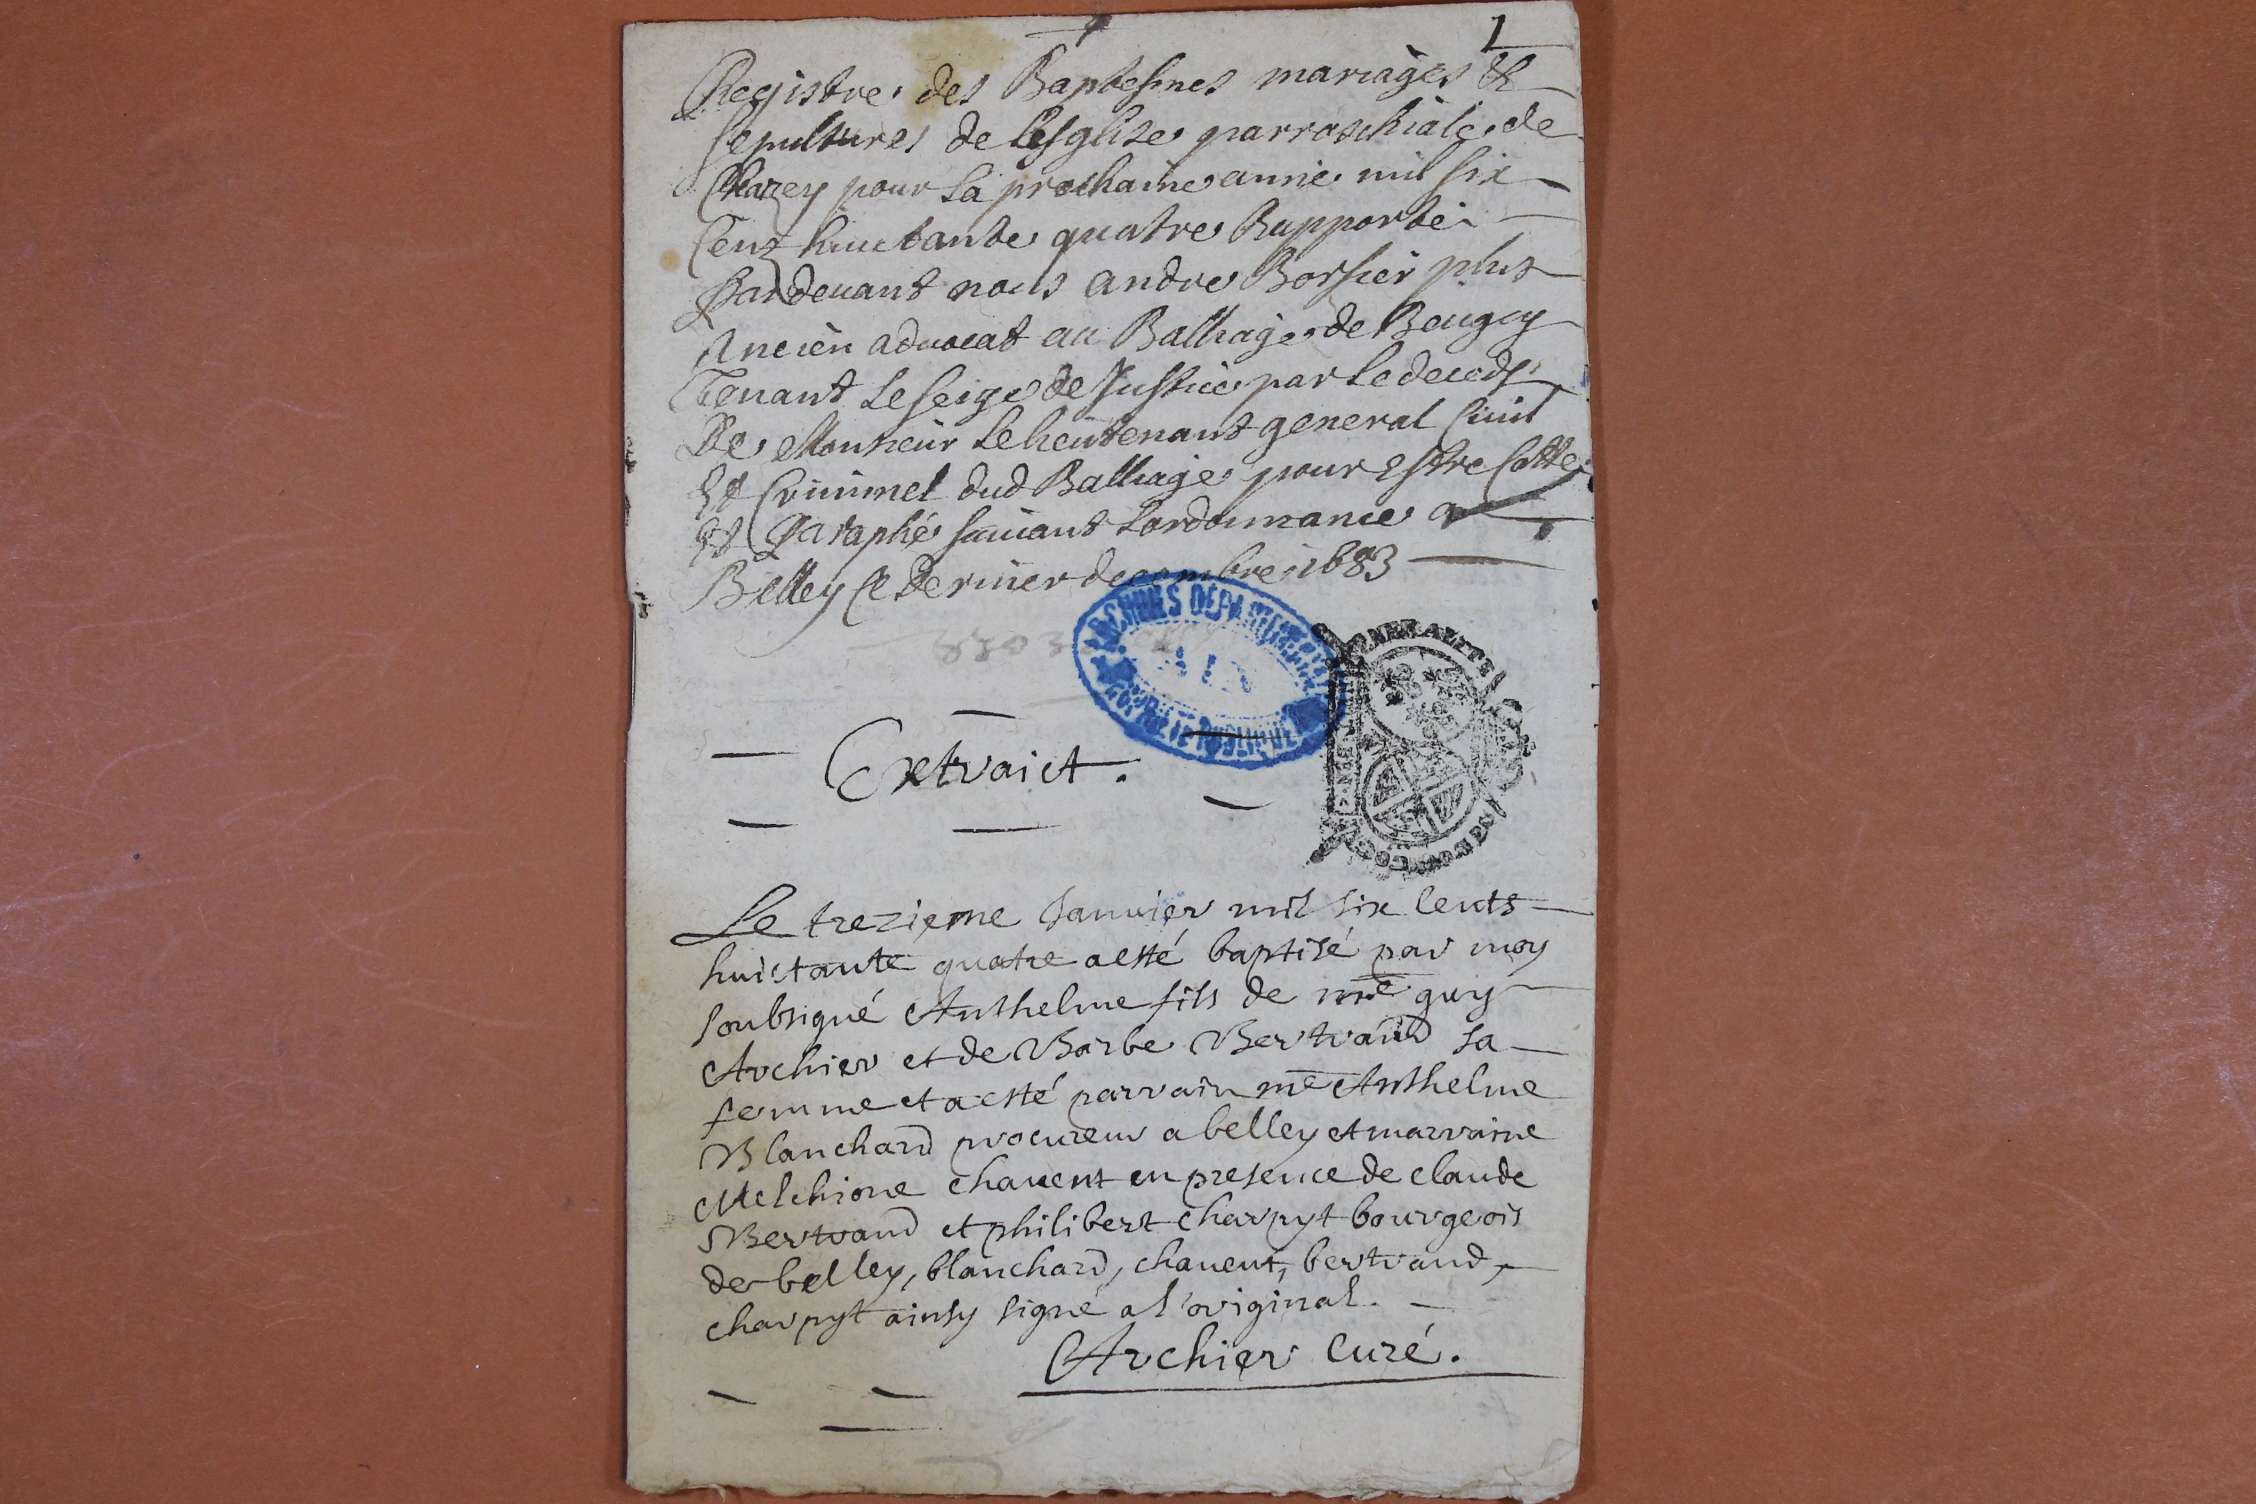 1
Registre des Baptesmes mariages &
sepultures de lesglise parrochiale de
Chazey pour la prochaine année mil six
Centz huictante quatre Rapporté
Pardevant nous andre Bossier plus
Ancien advocat au Balliage de Beugey
Tenant le seige de Justice par le decedz
De Monsieur le lieutenant general Civil
Et Criminel dud Balliage pour Estre Cotté
Et Paraphé suivant Lordonnance a
Belley ce dernier decembre 1683
Extraict.
Le trezieme Janvier mil six cents
huictante quatre a esté baptisé par moy
soubsigné Anthelme fils de me guy
Archier et de Barbe Bertrand sa
femme et a esté parrain me Anthelme
Blanchard procureur a belley et marraine
Melchione chavent en presence de claude
Bertrand et philibert charpyt bourgeois
de belley, blanchard, chavent, bertrand,
charpyt ainsy signé a l'original.
Archier curé.